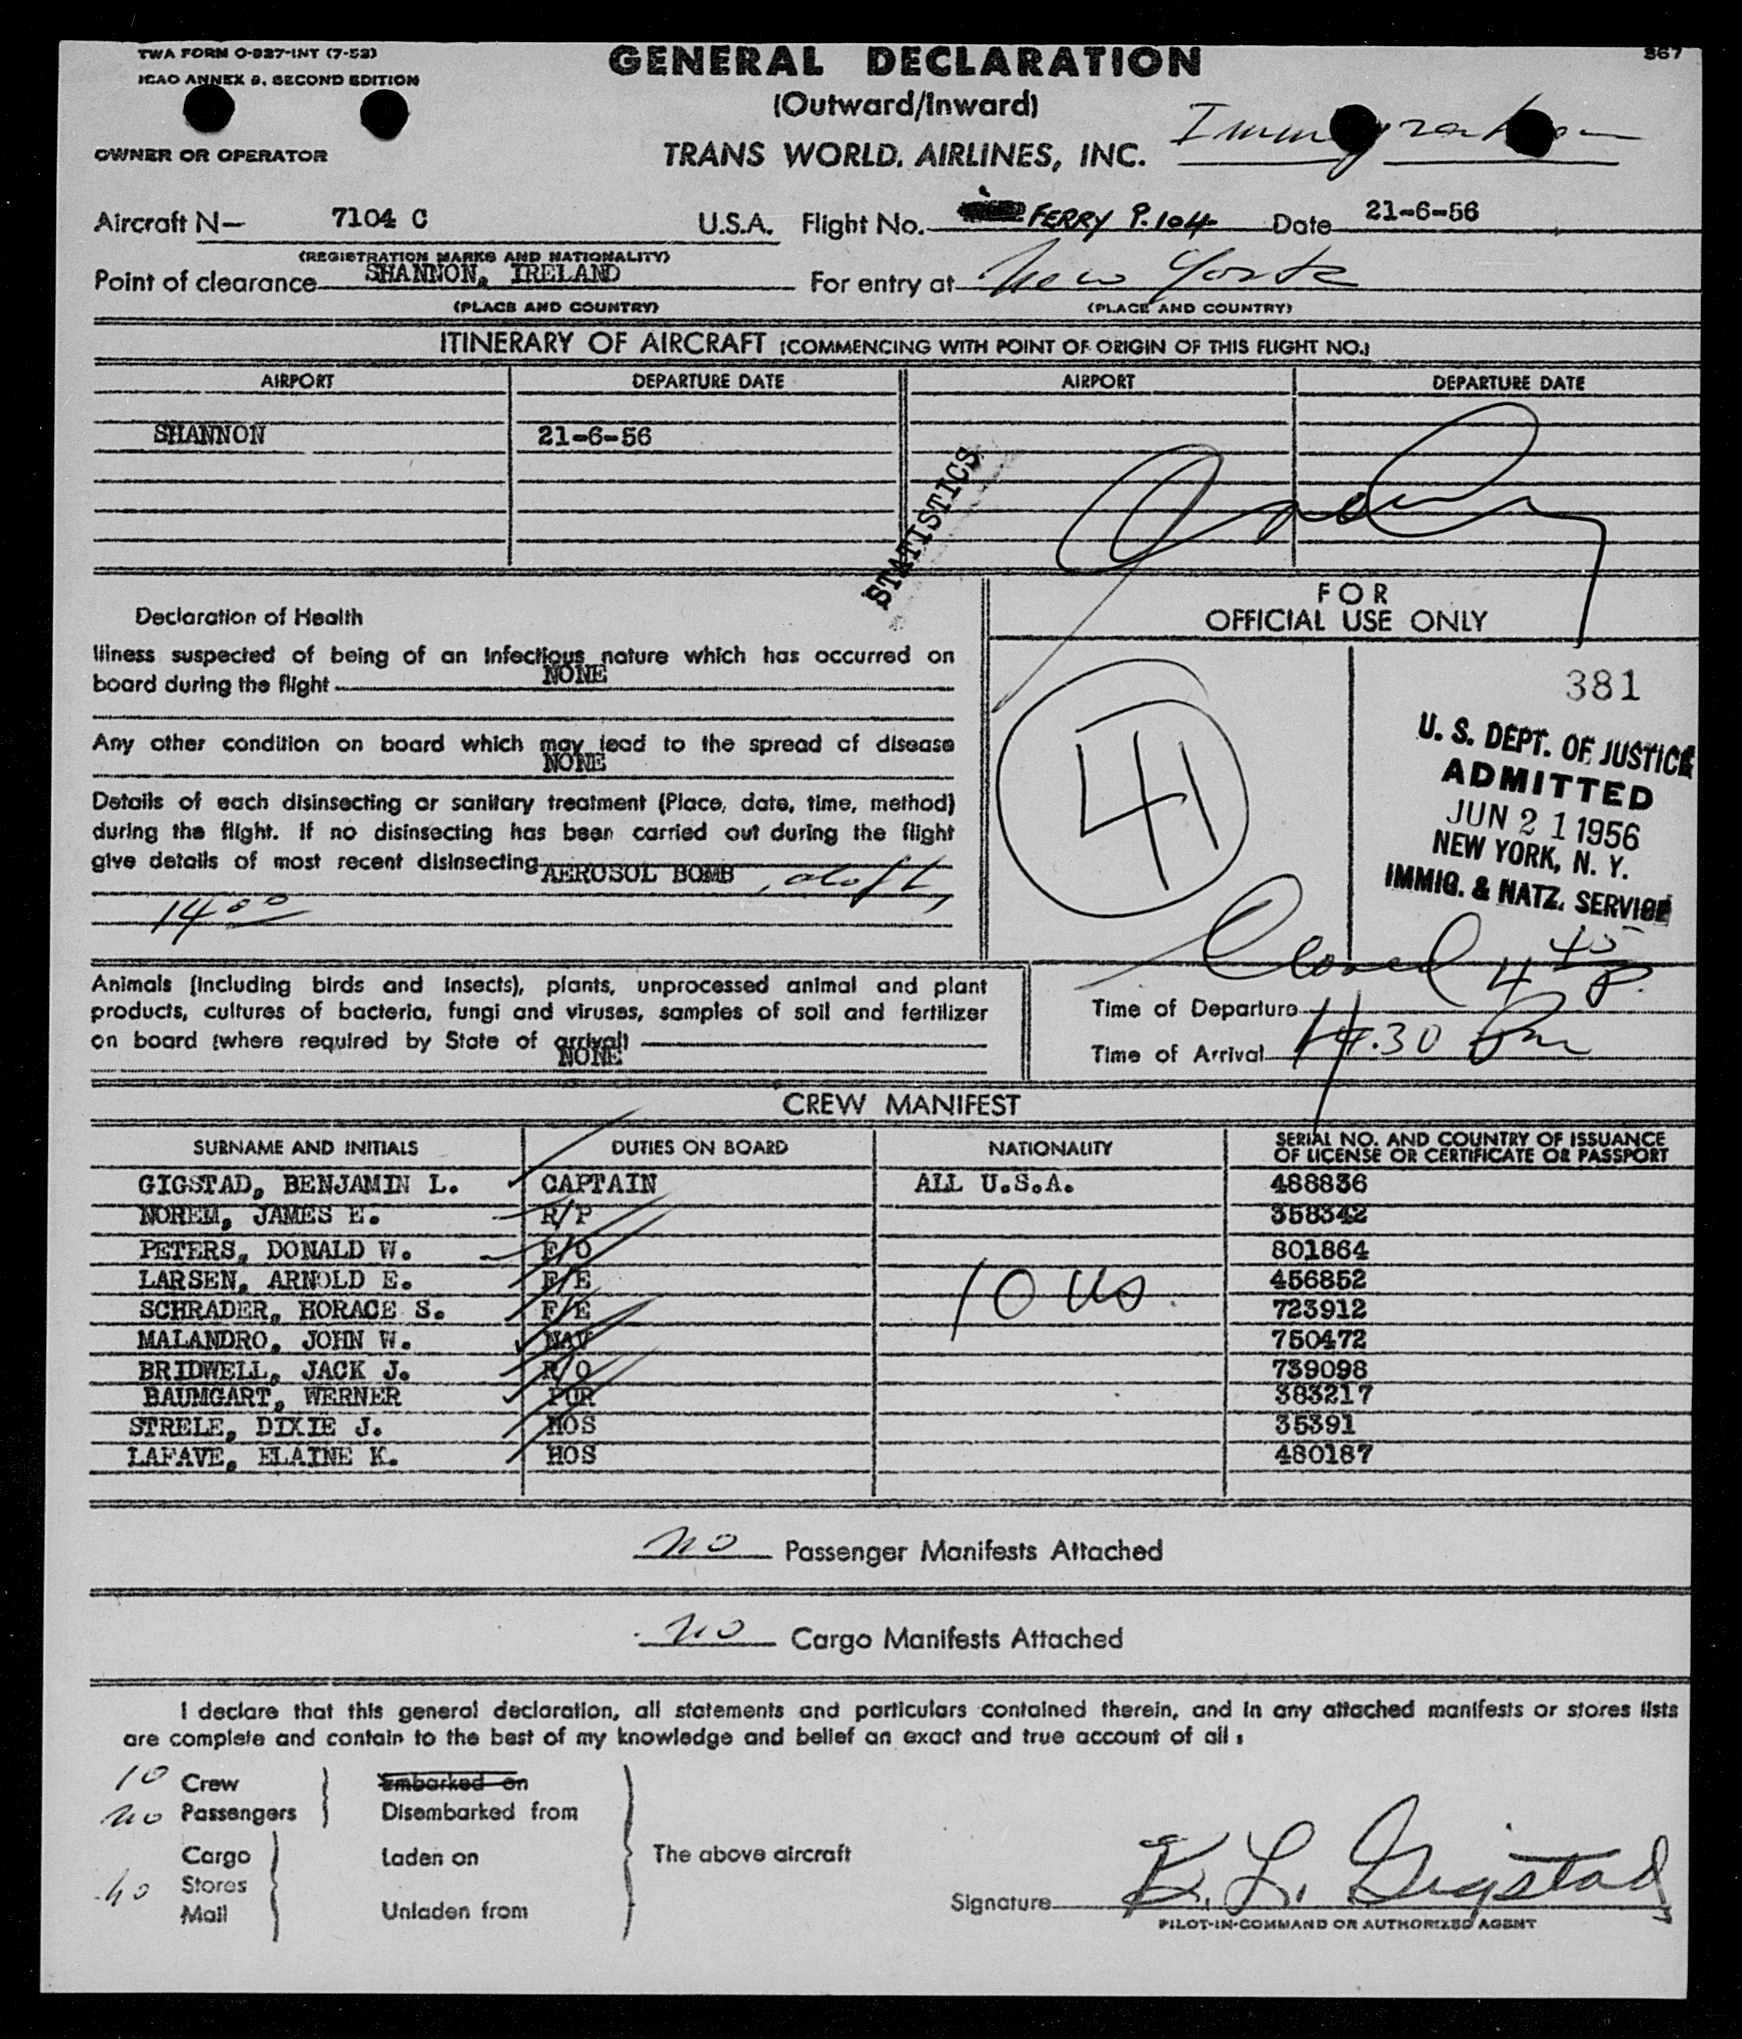 TWA FORM O-927-INT (7-53)
ICAO ANNEX 9, SECOND EDITION
GENERAL DECLARATION
(Outward/Inward)
867
Immigration
OWNER OR OPERATOR
TRANS WORLD AIRLINES, INC.
Aircraft N— 7104 C U.S.A. Flight No. FERRY P.104 Date 21-6-56
(REGISTRATION MARKS AND NATIONALITY)
Point of clearance SHANNON, IRELAND For entry at New York
(PLACE AND COUNTRY) (PLACE AND COUNTRY)
ITINERARY OF AIRCRAFT (COMMENCING WITH POINT OF ORIGIN OF THIS FLIGHT NO.)
AIRPORT DEPARTURE DATE AIRPORT DEPARTURE DATE
SHANNON 21-6-56
STATISTICS
FOR
OFFICIAL USE ONLY
Declaration of Health
Illness suspected of being of an infectious nature which has occurred on
board during the flight NONE
Any other condition on board which may lead to the spread of disease
NONE
Details of each disinsecting or sanitary treatment (Place, date, time, method)
during the flight. If no disinsecting has been carried out during the flight
give details of most recent disinsecting AEROSOL BOMB, aloft,
14 00
41
381
U. S. DEPT. OF JUSTICE
ADMITTED
JUN 21 1956
NEW YORK, N. Y.
IMMIG. & NATZ. SERVICE
Closed 4 45 P.
Animals (including birds and insects), plants, unprocessed animal and plant
products, cultures of bacteria, fungi and viruses, samples of soil and fertilizer
on board (where required by State of arrival) NONE
Time of Departure
Time of Arrival 4.30 Pm
CREW MANIFEST
SURNAME AND INITIALS DUTIES ON BOARD NATIONALITY SERIAL NO. AND COUNTRY OF ISSUANCE OF LICENSE OR CERTIFICATE OR PASSPORT
GIGSTAD, BENJAMIN L. CAPTAIN ALL U.S.A. 488836
NOREM, JAMES E. R/P 358342
PETERS, DONALD W. F/O 801864
LARSEN, ARNOLD E. F/E 456852
SCHRADER, HORACE S. F/E 723912
10 US
MALANDRO, JOHN W. NAV 750472
BRIDWELL, JACK J. R/O 739098
BAUMGART, WERNER PUR 383217
STRELE, DIXIE J. HOS 35391
LAFAVE, ELAINE K. HOS 480187
no Passenger Manifests Attached
no Cargo Manifests Attached
I declare that this general declaration, all statements and particulars contained therein, and in any attached manifests or stores lists
are complete and contain to the best of my knowledge and belief an exact and true account of all:
10 Crew Embarked on
no Passengers Disembarked from
Cargo Laden on The above aircraft
no Stores
Mail Unladen from
Signature B. L. Gigstad
PILOT-IN-COMMAND OR AUTHORIZED AGENT